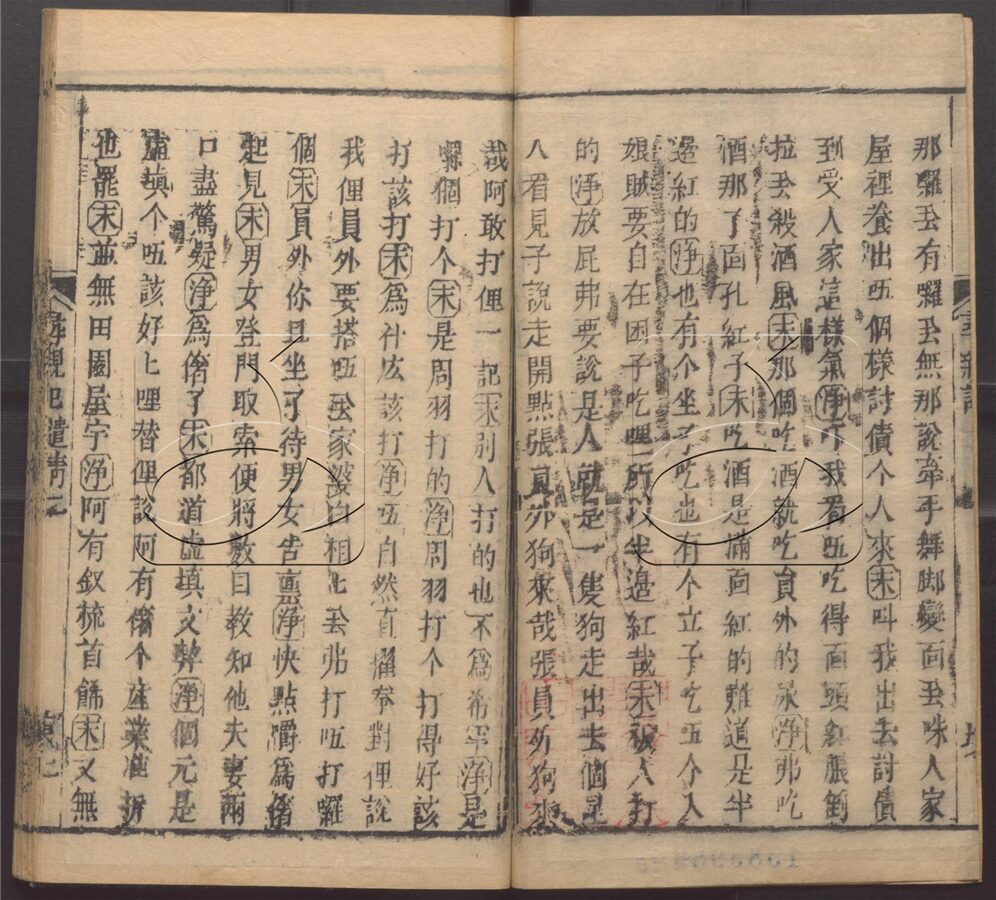 那囉丟有囉丟無那說牽手舞脚變面丟咮人家
屋裡養出呱個樣討債个人來末叫我出去討債
到受人家這樣氣淨吓我看呱吃得面頭紅脹倒
拉丟殺酒風末那個吃酒就吃員外的永淨弗吃
酒那了面孔紅子末吃酒是滿面紅的難道是半
邊紅的淨也有个坐子吃也有个立子吃呱个入
娘賊要自在困子吃哩所以半邊紅哉末被人打
的淨放屁弗要說是人就是一隻狗走出去個是
人看見子說走開點張員外狗來哉張員外狗來
哉阿敢打俚一記末別人打的也不爲希罕淨是
囉個打个末是周羽打的淨周羽打个打得好該
打該打末爲什庅該打淨呱自然直攦拳對俚說
我俚員外要搭呱丟家婆白相化丟弗打呱打囉
個末員外你且坐了待男女告禀淨快點嚼爲偺
起見末男女登門取索便將數目教知他夫妻兩
口盡驚疑淨爲偺了末都道虛填文契淨個元是
虛填个呱該好上哩替俚說阿有偺个產業准折
也罷末並無田園屋宇淨阿有釵梳首飾末又無
尋親記 遣靑